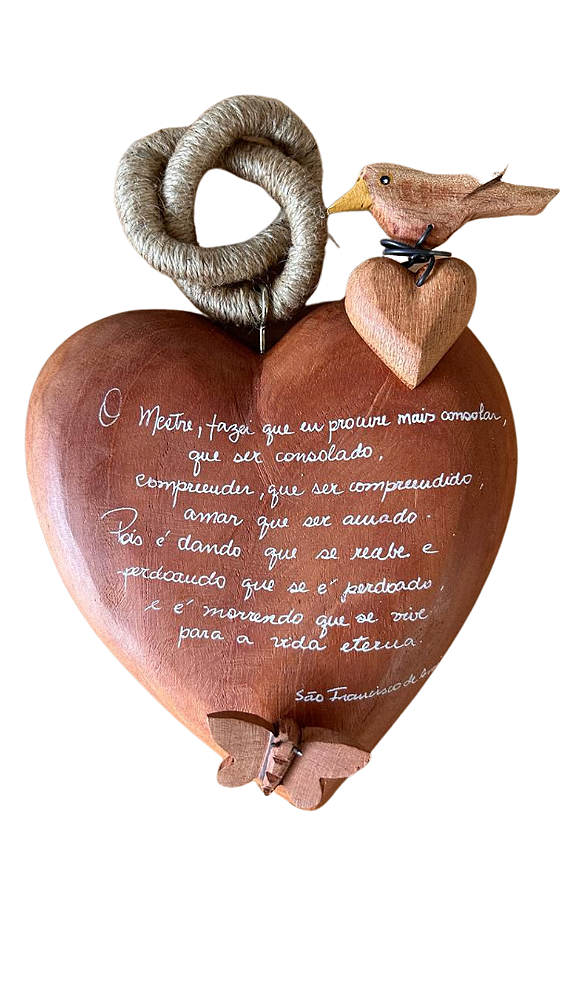 O Mestre, fazei que eu procure mais consolar,
que ser consolado,
compreender, que ser compreendido,
amar que ser amado.
Pois é dando que se recebe e
perdoando que se é perdoado,
e é morrendo que se vive
para a vida eterna.
São Francisco de